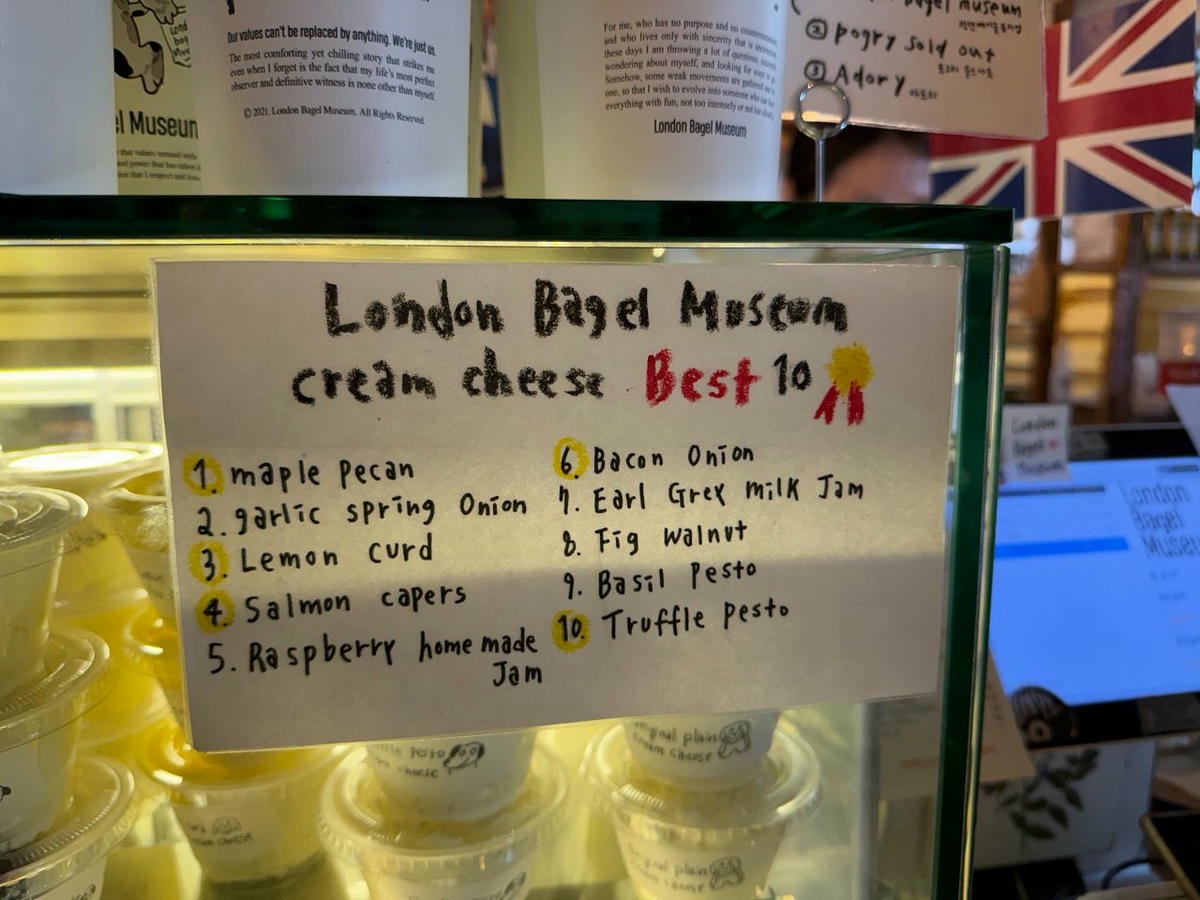 Our values can't be replaced by anything. We're just us.
The most comforting yet chilling story that strikes me
even when I forget is the fact that my life's most perfect
observer and definitive witness is none other than myself.
© 2021. London Bagel Museum. All Rights Reserved.
el Museum
For me, who has no purpose and no
and who lives only with sincerity that is
these days I am throwing a lot of questions,
wondering about myself, and looking for
Somehow, some weak movements are gathered
one, so that I wish to evolve into someone who can
everything with fun, not too intensely or not too
London Bagel Museum
bagel museum
② pogry sold out
③ Adory
London Bagel Museum
cream cheese Best 10
1. maple pecan
2. garlic spring Onion
3. Lemon curd
4. Salmon capers
5. Raspberry home made
Jam
6. Bacon Onion
7. Earl Grey milk Jam
8. Fig walnut
9. Basil Pesto
10. Truffle pesto
London
Bagel
Museum
London
Bagel
Museu
pesto
cheese
original plain
cream cheese
original plain
cream cheese